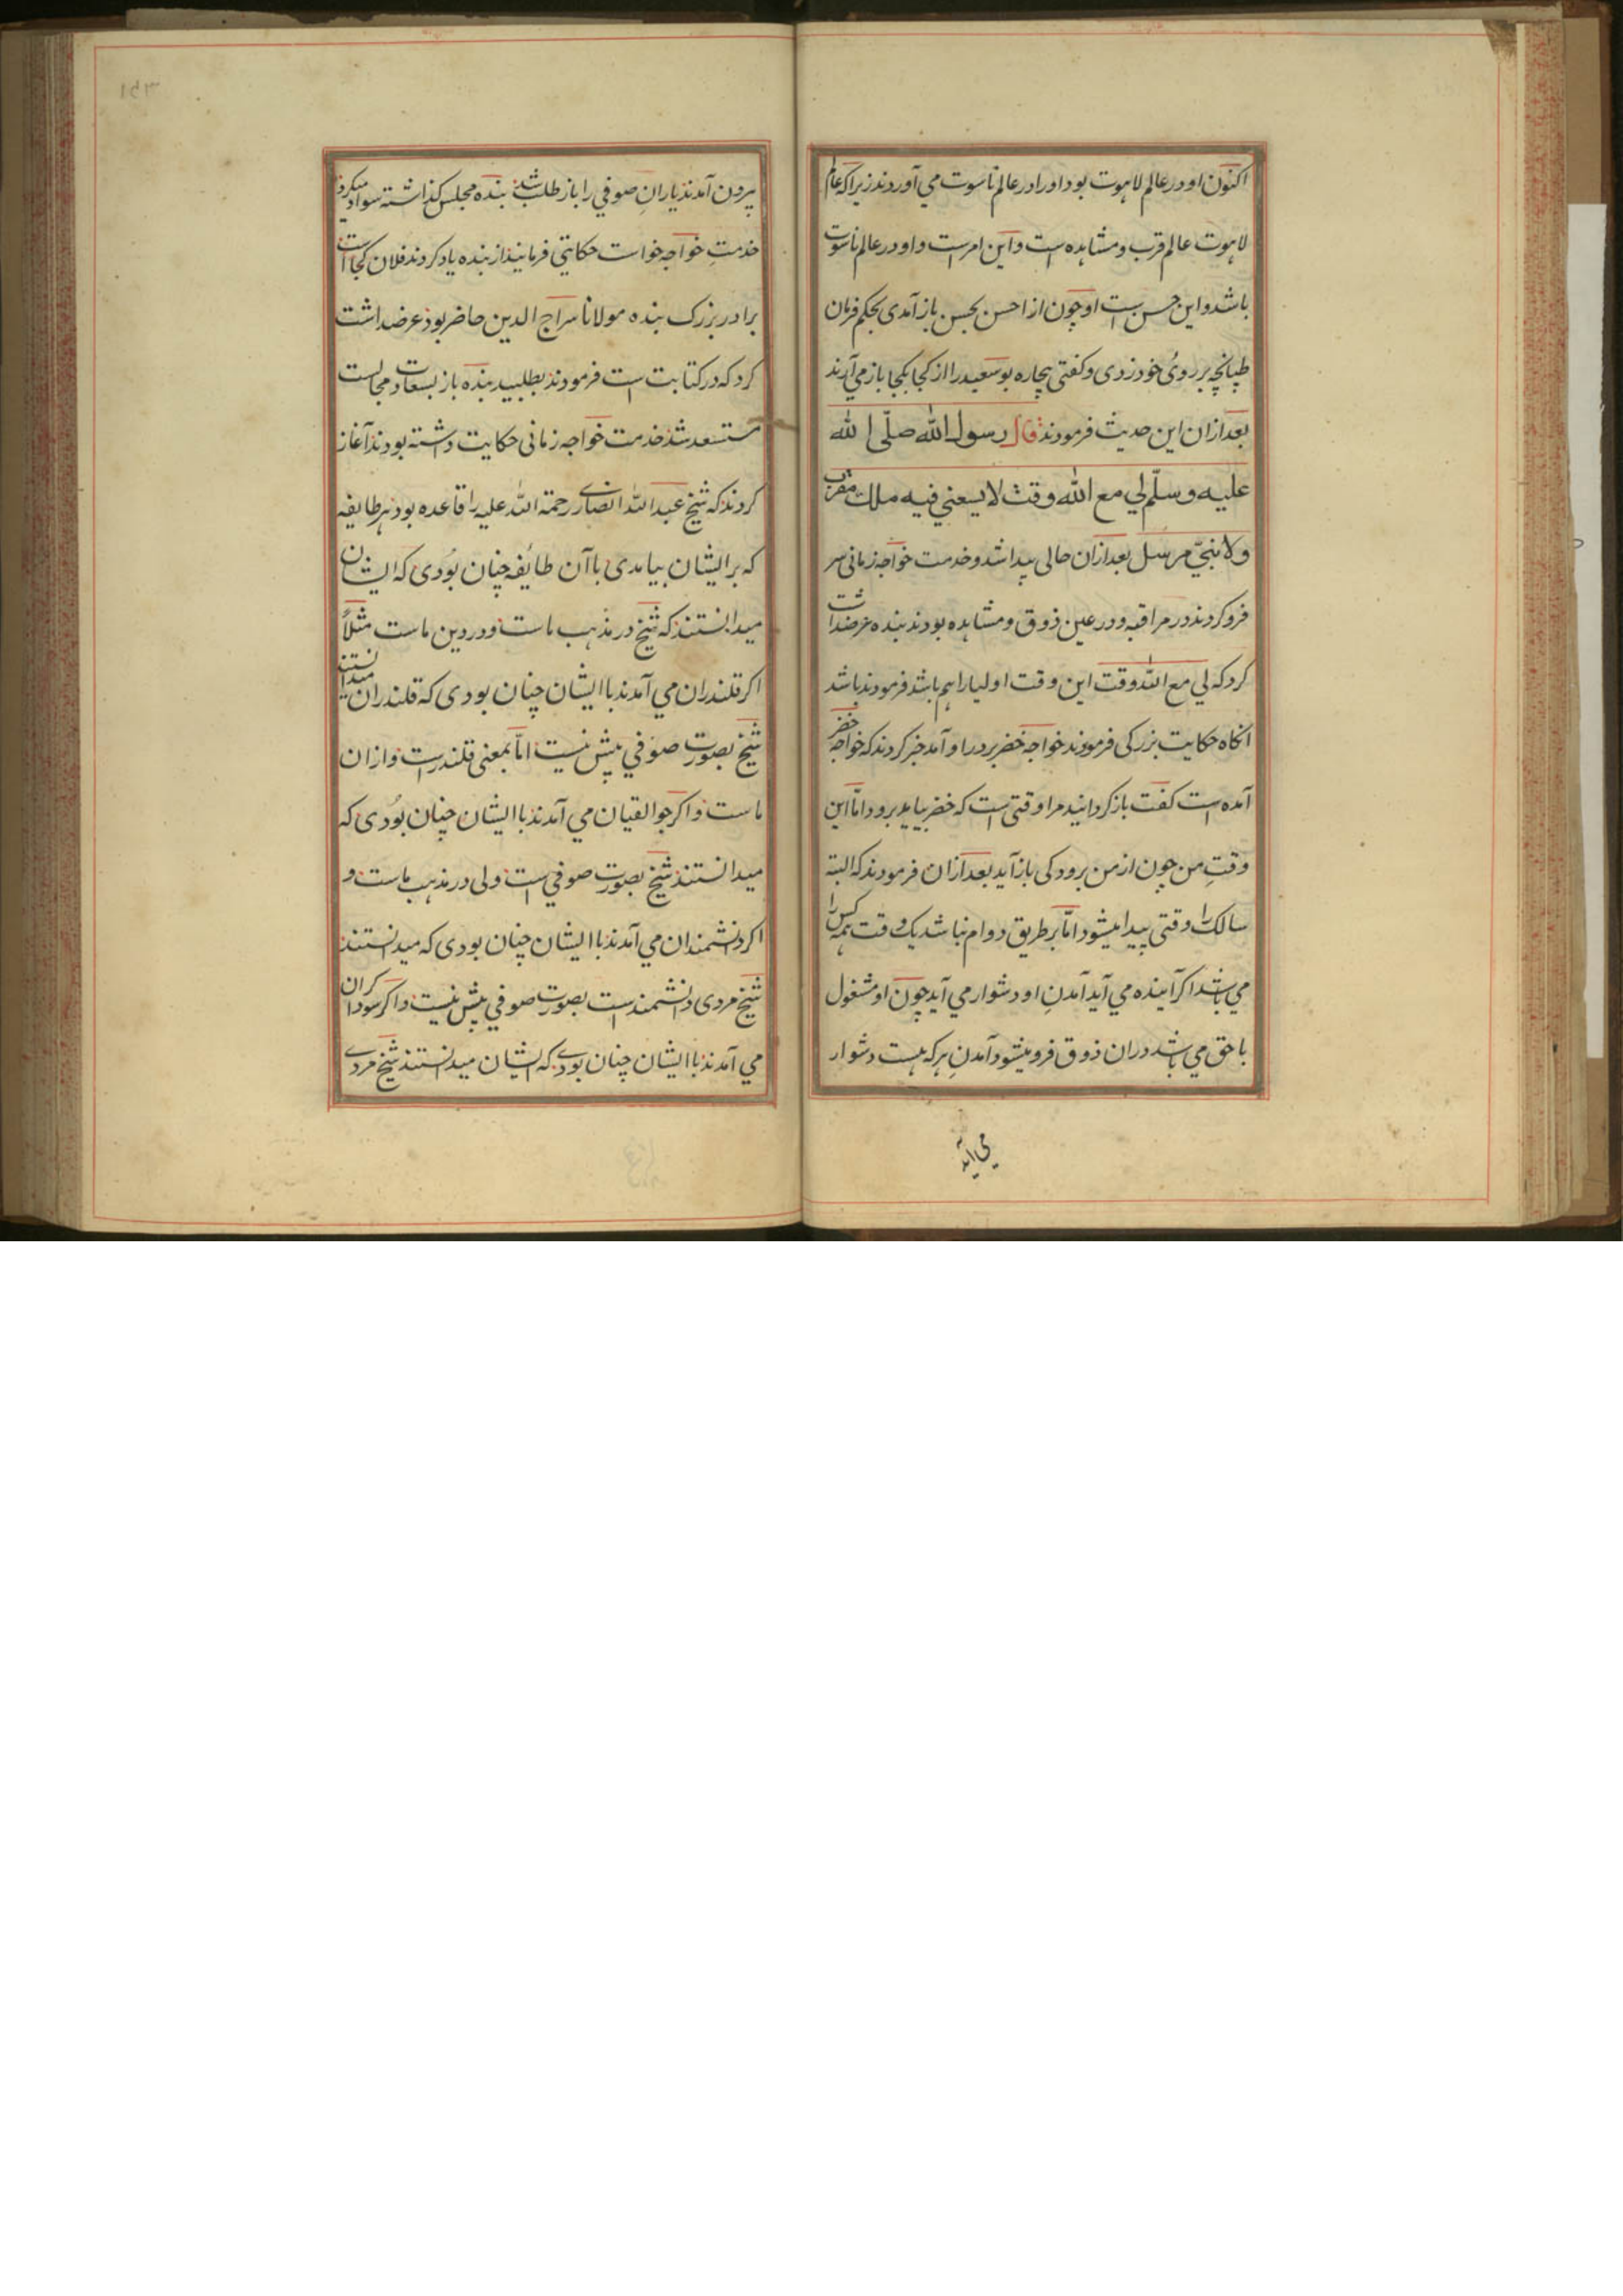 اکنون او در عالم لاهوت بود او را در عالم ناسوت می آوردند زیرا که عالم
لاهوت عالم قرب و مشاهده است و این امر است و او در عالم ناسوت
باشد و این حسن است او چون از احسن بحسن باز آمدی بحکم فرمان
طپانچه بر روئ خود زدی و کفتی بیچاره بو سعید را از کجا بکجا باز می آرند
بعد ازان این حدیث فرمودند قال رسول الله صلّی الله
علیه و سلّم لي مع الله وقت لا یسعني فیه ملك مقرب
ولا نبيّ مرسل بعد ازان حالی پیدا شد و خدمت خواجه زمانی سر
فرو کردند در مراقبه و در عین ذوق و مشاهده بودند بنده عرضداشت
کرد که لي مع الله وقت این وقت اولیا را هم باشد فرمودند باشد
انکاه حکایت بزرکی فرمودند خواجه خضر بر در او آمد خبر کردند که خواجه خضر
آمده است کفت باز کردانید مرا وقتی است که خضر بیاید برود امّا این
وقتِ من چون از من برود کی باز آید بعد ازان فرمودند که البته
سالک را وقتی پیدا میشود امّا بر طریق دوام نباشد یک وقت همه کس را
می باشد اکر آینده می آید آمدنِ او دشوار می آید چون او مشغول
با حق می باشد دران ذوق فرو میشود آمدنِ هر که هست دشوار
می آید
۱۵۳
بیرون آمدند یارانِ صوفی را باز طلب شد بنده مجلس کذاشته سواد میکرد
خدمتِ خواجه خواست حکایتی فرمایند از بنده یاد کردند فلان کجا است
برادر بزرک بنده مولانا سراج الدین حاضر بود عرضداشت
کرد که در کتابت است فرمودند بطلبید بنده باز بسعادت مجالست
مستسعد شد خدمت خواجه زمانی حکایت داشته بودند آغاز
کردند که شیخ عبد الله انصاری رحمة الله علیه را قاعده بود هر طایفه
که بر ایشان بیامدی با آن طائفه چنان بُودی که ایشان
میدانستند که شیخ در مذهب ماست و در دین ماست مثلاً
اکر قلندران می آمدند با ایشان چنان بودی که قلندران میدانستند
شیخ بصورت صوفی بیش نیست امّا بمعنی قلندرست و ازان
ماست و اکر جوالقیان می آمدند با ایشان چنان بُودی که
میدانستند شیخ بصورت صوفی است ولی در مذهب ماست و
اکر دانشمندان می آمدند با ایشان چنان بودی که میدانستند
شیخ مردی دانشمند است بصورت صوفی بیش نیست و اکر سوداکران
می آمدند با ایشان چنان بودی که ایشان میدانستند شیخ مردی